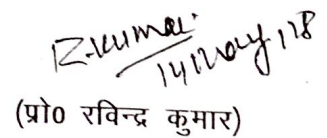 R.Kumar
14/May/18
(प्रो0 रविन्द्र कुमार)